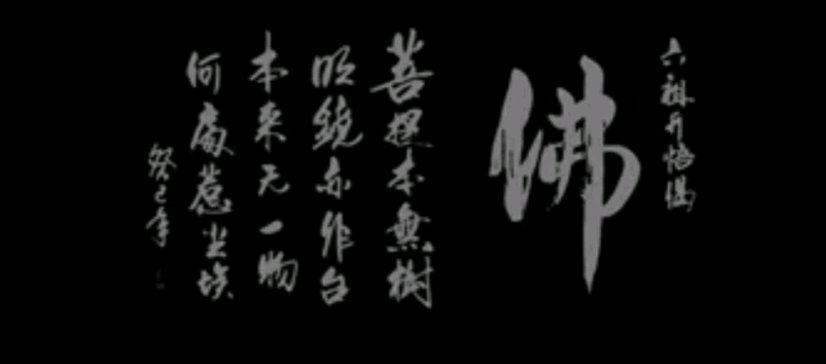 六祖开悟偈
佛
菩提本無樹
明鏡亦非台
本来无一物
何處惹尘埃
癸巳年